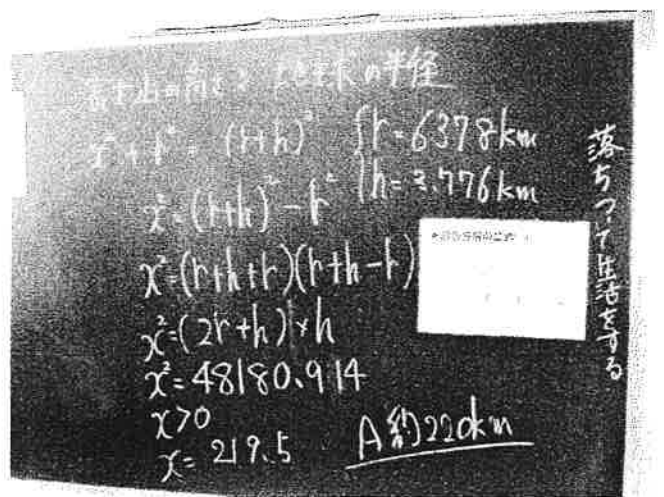 富士山の高さと地球の半径
x²+r²=(r+h)²
{r=6378km
h=3.776km
x²=(r+h)²-r²
x²=(r+h+r)(r+h-r)
x²=(2r+h)×h
x²=48180.914
x>0
x=219.5
A 約220km
落ちついて生活をする